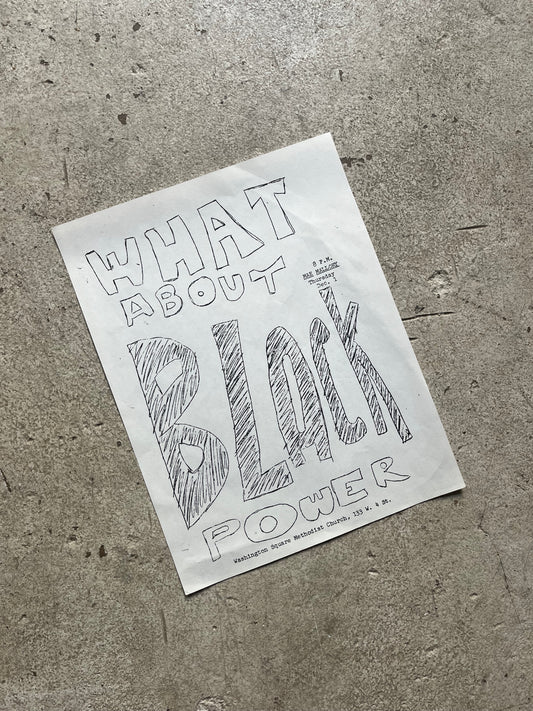 WHAT
ABOUT
8 P.M.
MAE MALLORY
Thursday
Dec. 1
BLACK
POWER
Washington Square Methodist Church, 133 W. 4 St.